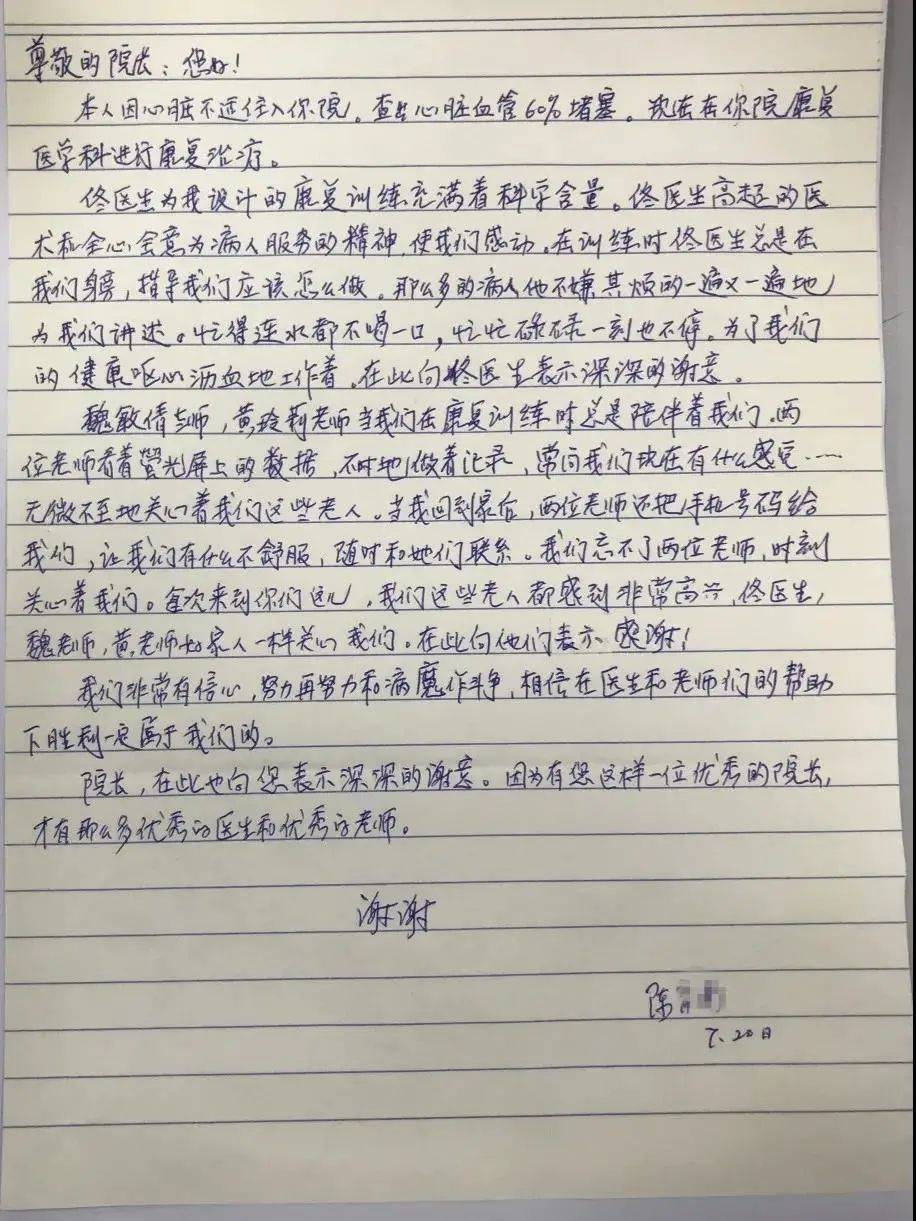 尊敬的院长：您好！
本人因心脏不适住入你院。查出心脏血管60%堵塞。现在在你院康复
医学科进行康复治疗。
佟医生为我设计的康复训练充满着科学含量。佟医生高超的医
术和全心全意为病人服务的精神，使我们感动。在训练时佟医生总是在
我们身旁，指导我们应该怎么做。那么多的病人他不嫌其烦的一遍又一遍地
为我们讲述。忙得连水都不喝一口，忙忙碌碌一刻也不停。为了我们
的健康呕心沥血地工作着。在此向佟医生表示深深的谢意。
魏敏倩老师，黄玲莉老师当我们在康复训练时总是陪伴着我们，两
位老师看着萤光屏上的数据，不时地做着记录，常问我们现在有什么感觉……
无微不至地关心着我们这些老人。当我回到家后，两位老师还把手机号码给
我们，让我们有什么不舒服，随时和她们联系。我们忘不了两位老师，时刻
关心着我们。每次来到你们这儿，我们这些老人都感到非常高兴，佟医生，
魏老师，黄老师如家人一样关心我们。在此向他们表示感谢！
我们非常有信心，努力再努力和病魔作斗争，相信在医生和老师们的帮助
下胜利一定属于我们的。
院长，在此也向您表示深深的谢意。因为有您这样一位优秀的院长，
才有那么多优秀的医生和优秀的老师。
谢谢
陈
7.20日